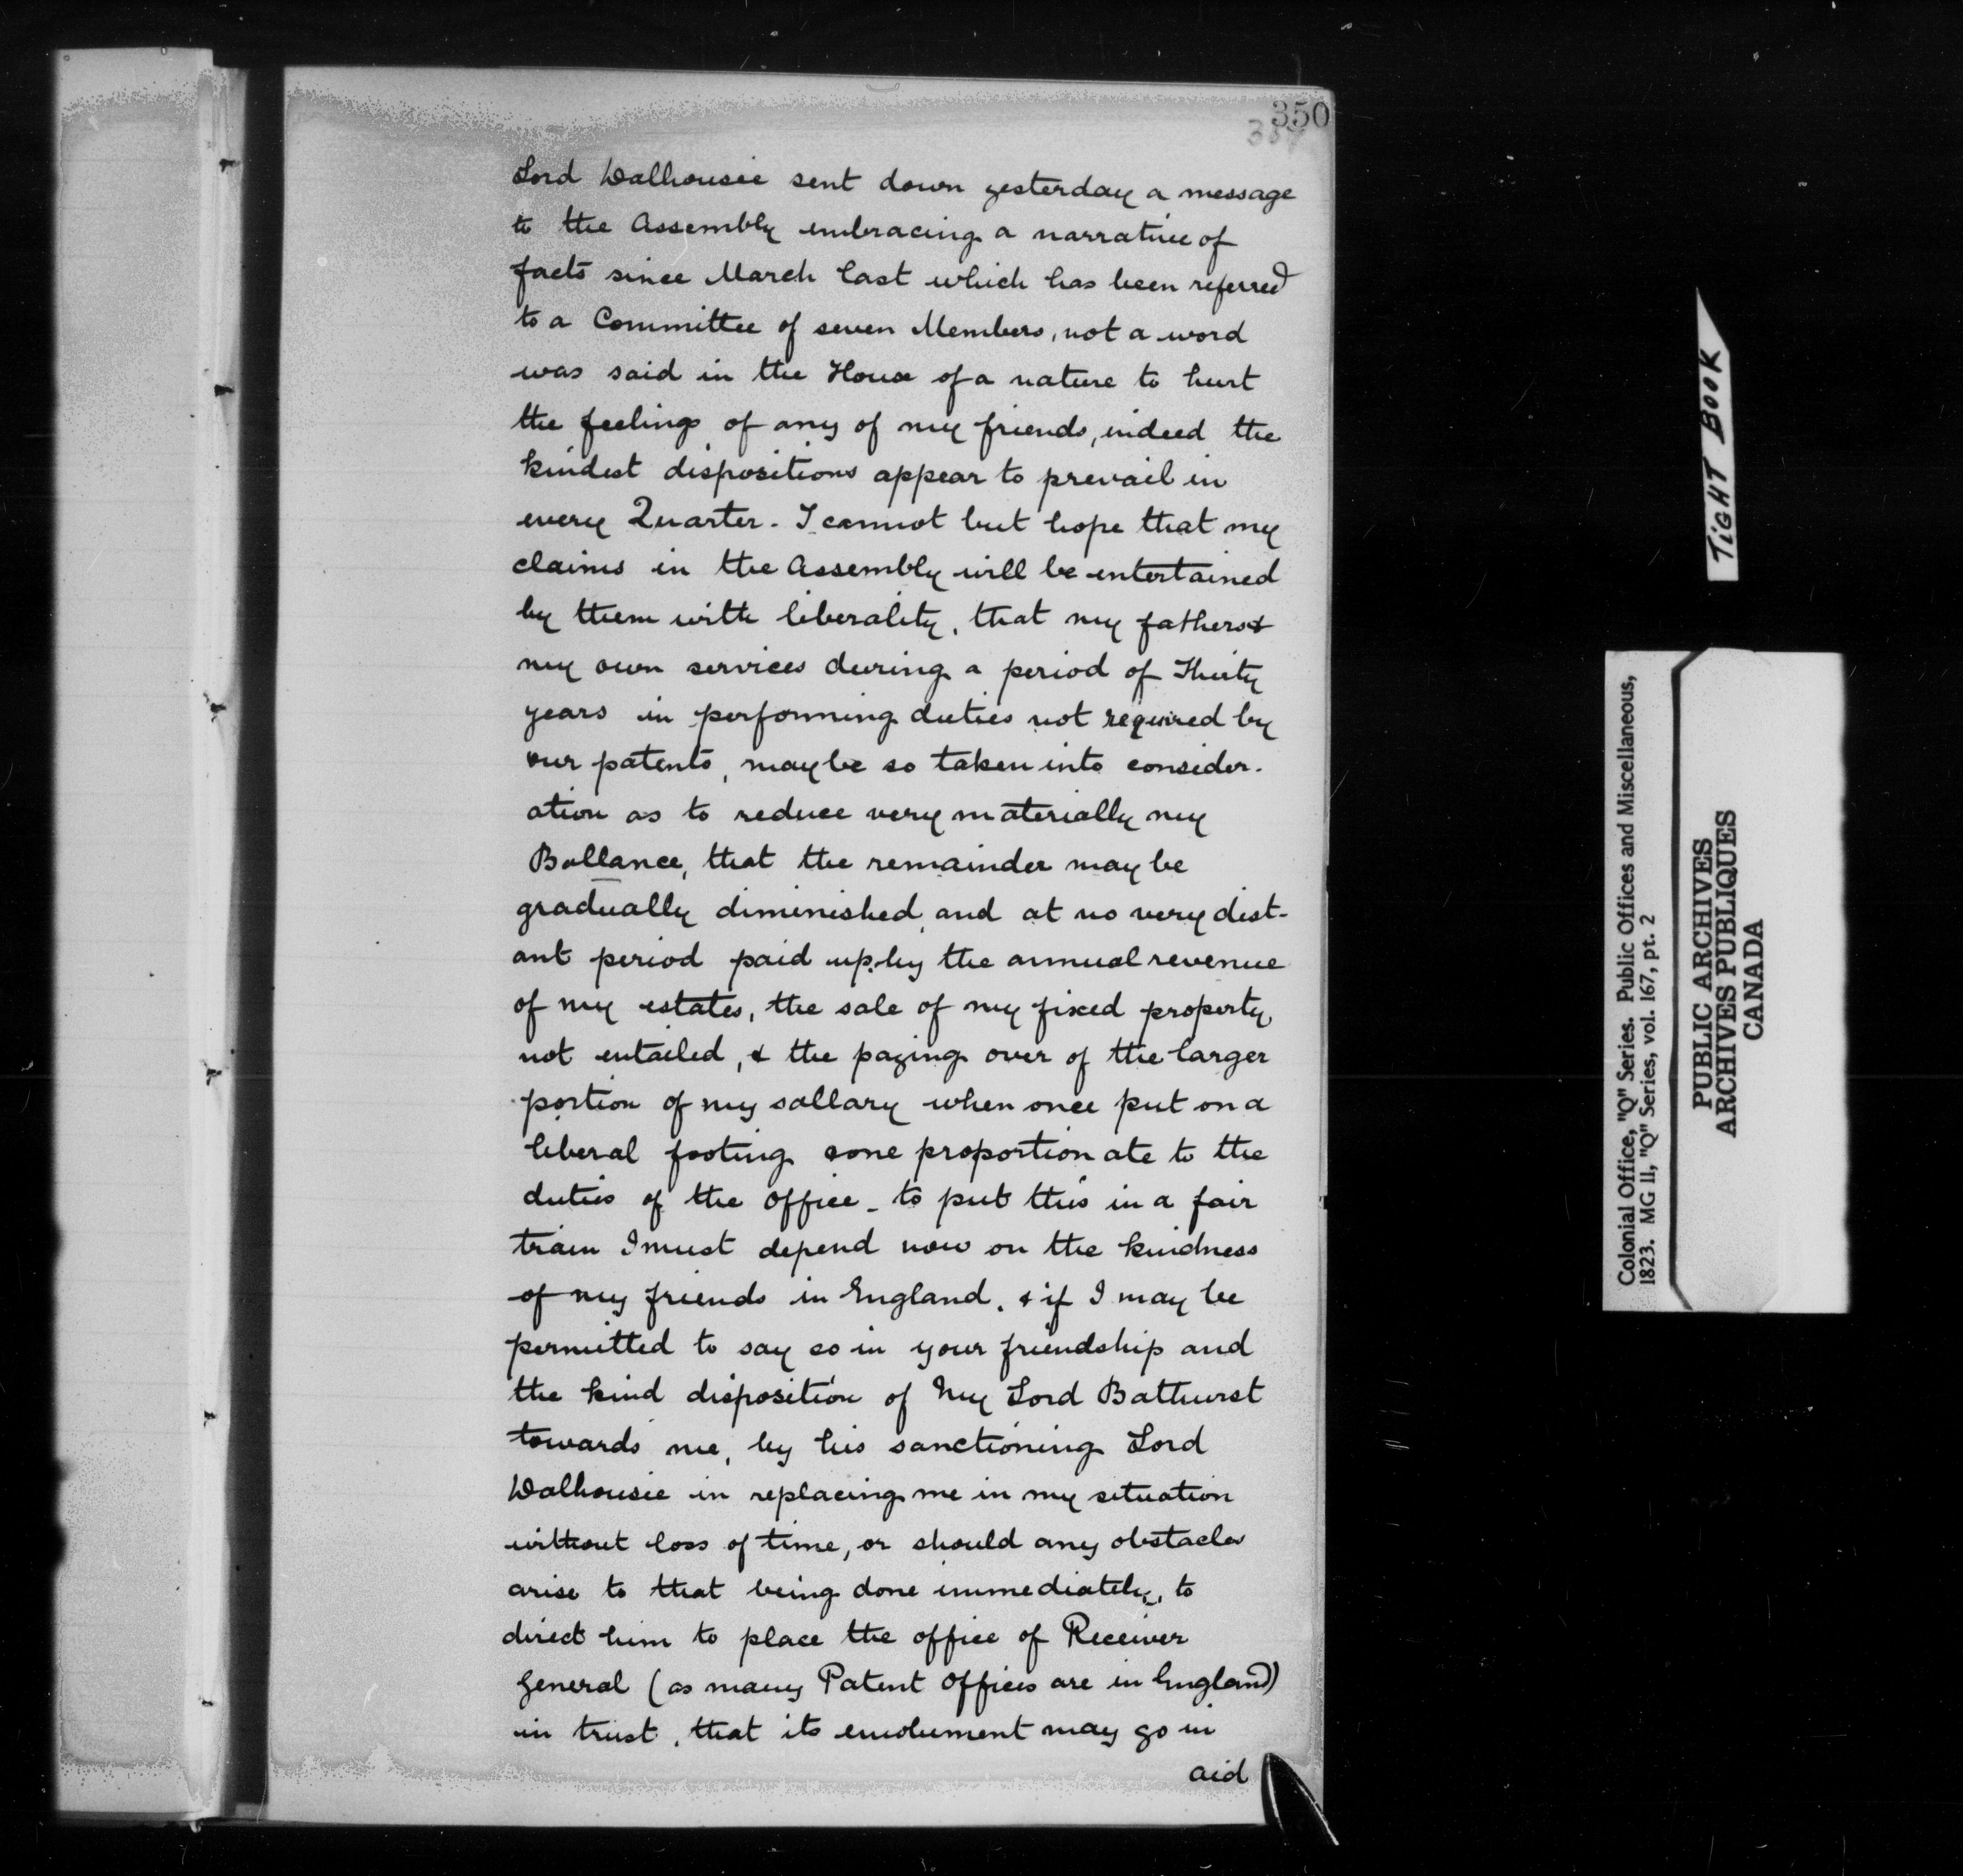 350
Lord Dalhousie sent down yesterday a message
to the Assembly embracing a narrative of
facts since March last which has been referred
to a Committee of seven Members, not a word
was said in the House of a nature to hurt
the feelings of any of my friends, indeed the
kindest dispositions appear to prevail in
every Quarter - I cannot but hope that my
claims in the Assembly will be entertained
by them with liberality, that my fathers &
my own services during a period of Thirty
years in performing duties not required by
our patents, may be so taken into consider-
ation as to reduce very materially my
Ballance, that the remainder may be
gradually diminished, and at no very dist-
ant period paid up by the annual revenue
of my estates, the sale of my fixed property,
not entailed, & the paying over of the larger
portion of my sallary when once put on a
liberal footing & one proportionate to the
duties of the office - to put this in a fair
train I must depend now on the kindness
of my friends in England, & if I may be
permitted to say so in your friendship and
the kind disposition of My Lord Bathurst
towards me, by his sanctioning Lord
Dalhousie in replacing me in my situation
without loss of time, or should any obstacles
arise to that being done immediately, to
direct him to place the office of Receiver
General (as many Patent offices are in England)
in trust, that its emolument may go in
aid
TIGHT BOOK
Colonial Office, "Q" Series. Public Offices and Miscellaneous,
1823. MG 11, "Q" Series, vol. 167, pt. 2
PUBLIC ARCHIVES
ARCHIVES PUBLIQUES
CANADA